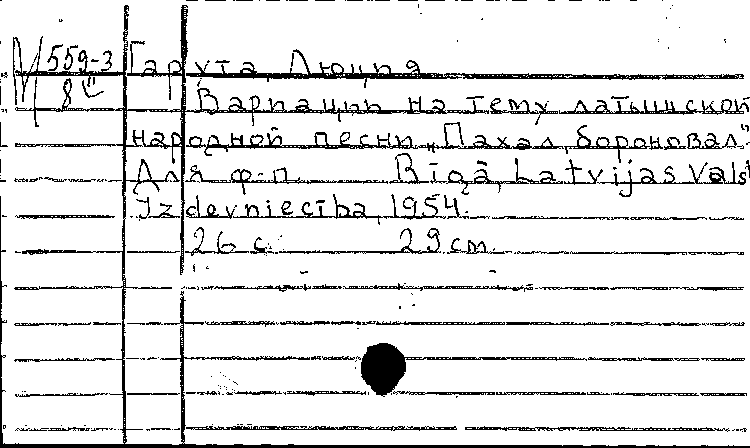 М 559-3 Гарута, Люция
8 Вариации на тему латышской
народной песни „Пахал, бороновал"
Для ф-п. Rīgā, Latvijas Valst
Izdevniecība, 1954.
26 с. 29 cm.